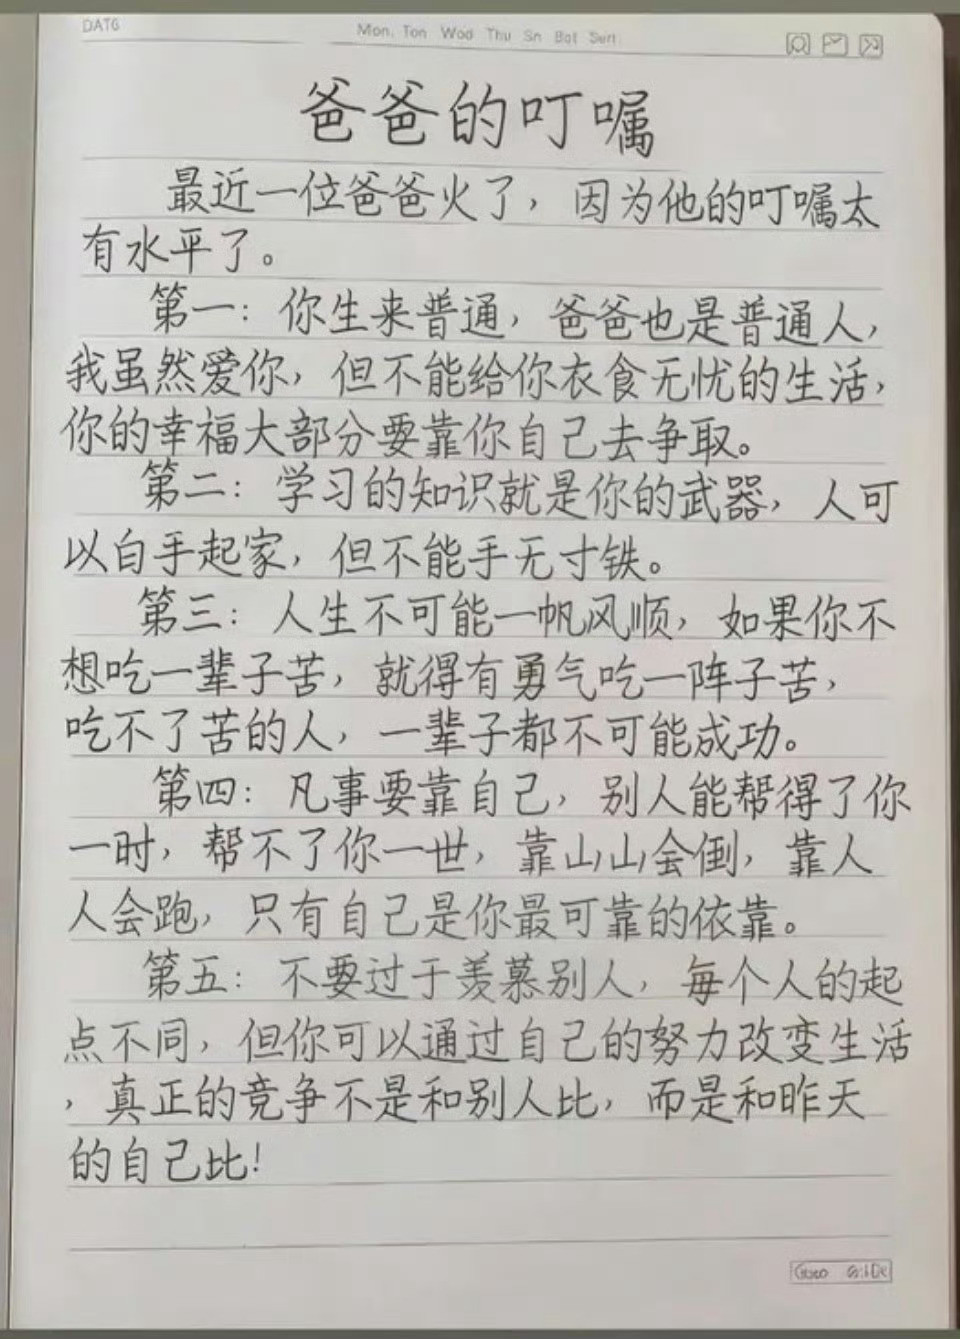 DATE
Mon. Ton Wod Thu Sn Bot Sert
爸爸的叮嘱
最近一位爸爸火了，因为他的叮嘱太
有水平了。
第一：你生来普通，爸爸也是普通人，
我虽然爱你，但不能给你衣食无忧的生活，
你的幸福大部分要靠你自己去争取。
第二：学习的知识就是你的武器，人可
以白手起家，但不能手无寸铁。
第三：人生不可能一帆风顺，如果你不
想吃一辈子苦，就得有勇气吃一阵子苦，
吃不了苦的人，一辈子都不可能成功。
第四：凡事要靠自己，别人能帮得了你
一时，帮不了你一世，靠山山会倒，靠人
人会跑，只有自己是你最可靠的依靠。
第五：不要过于羡慕别人，每个人的起
点不同，但你可以通过自己的努力改变生活
，真正的竞争不是和别人比，而是和昨天
的自己比！